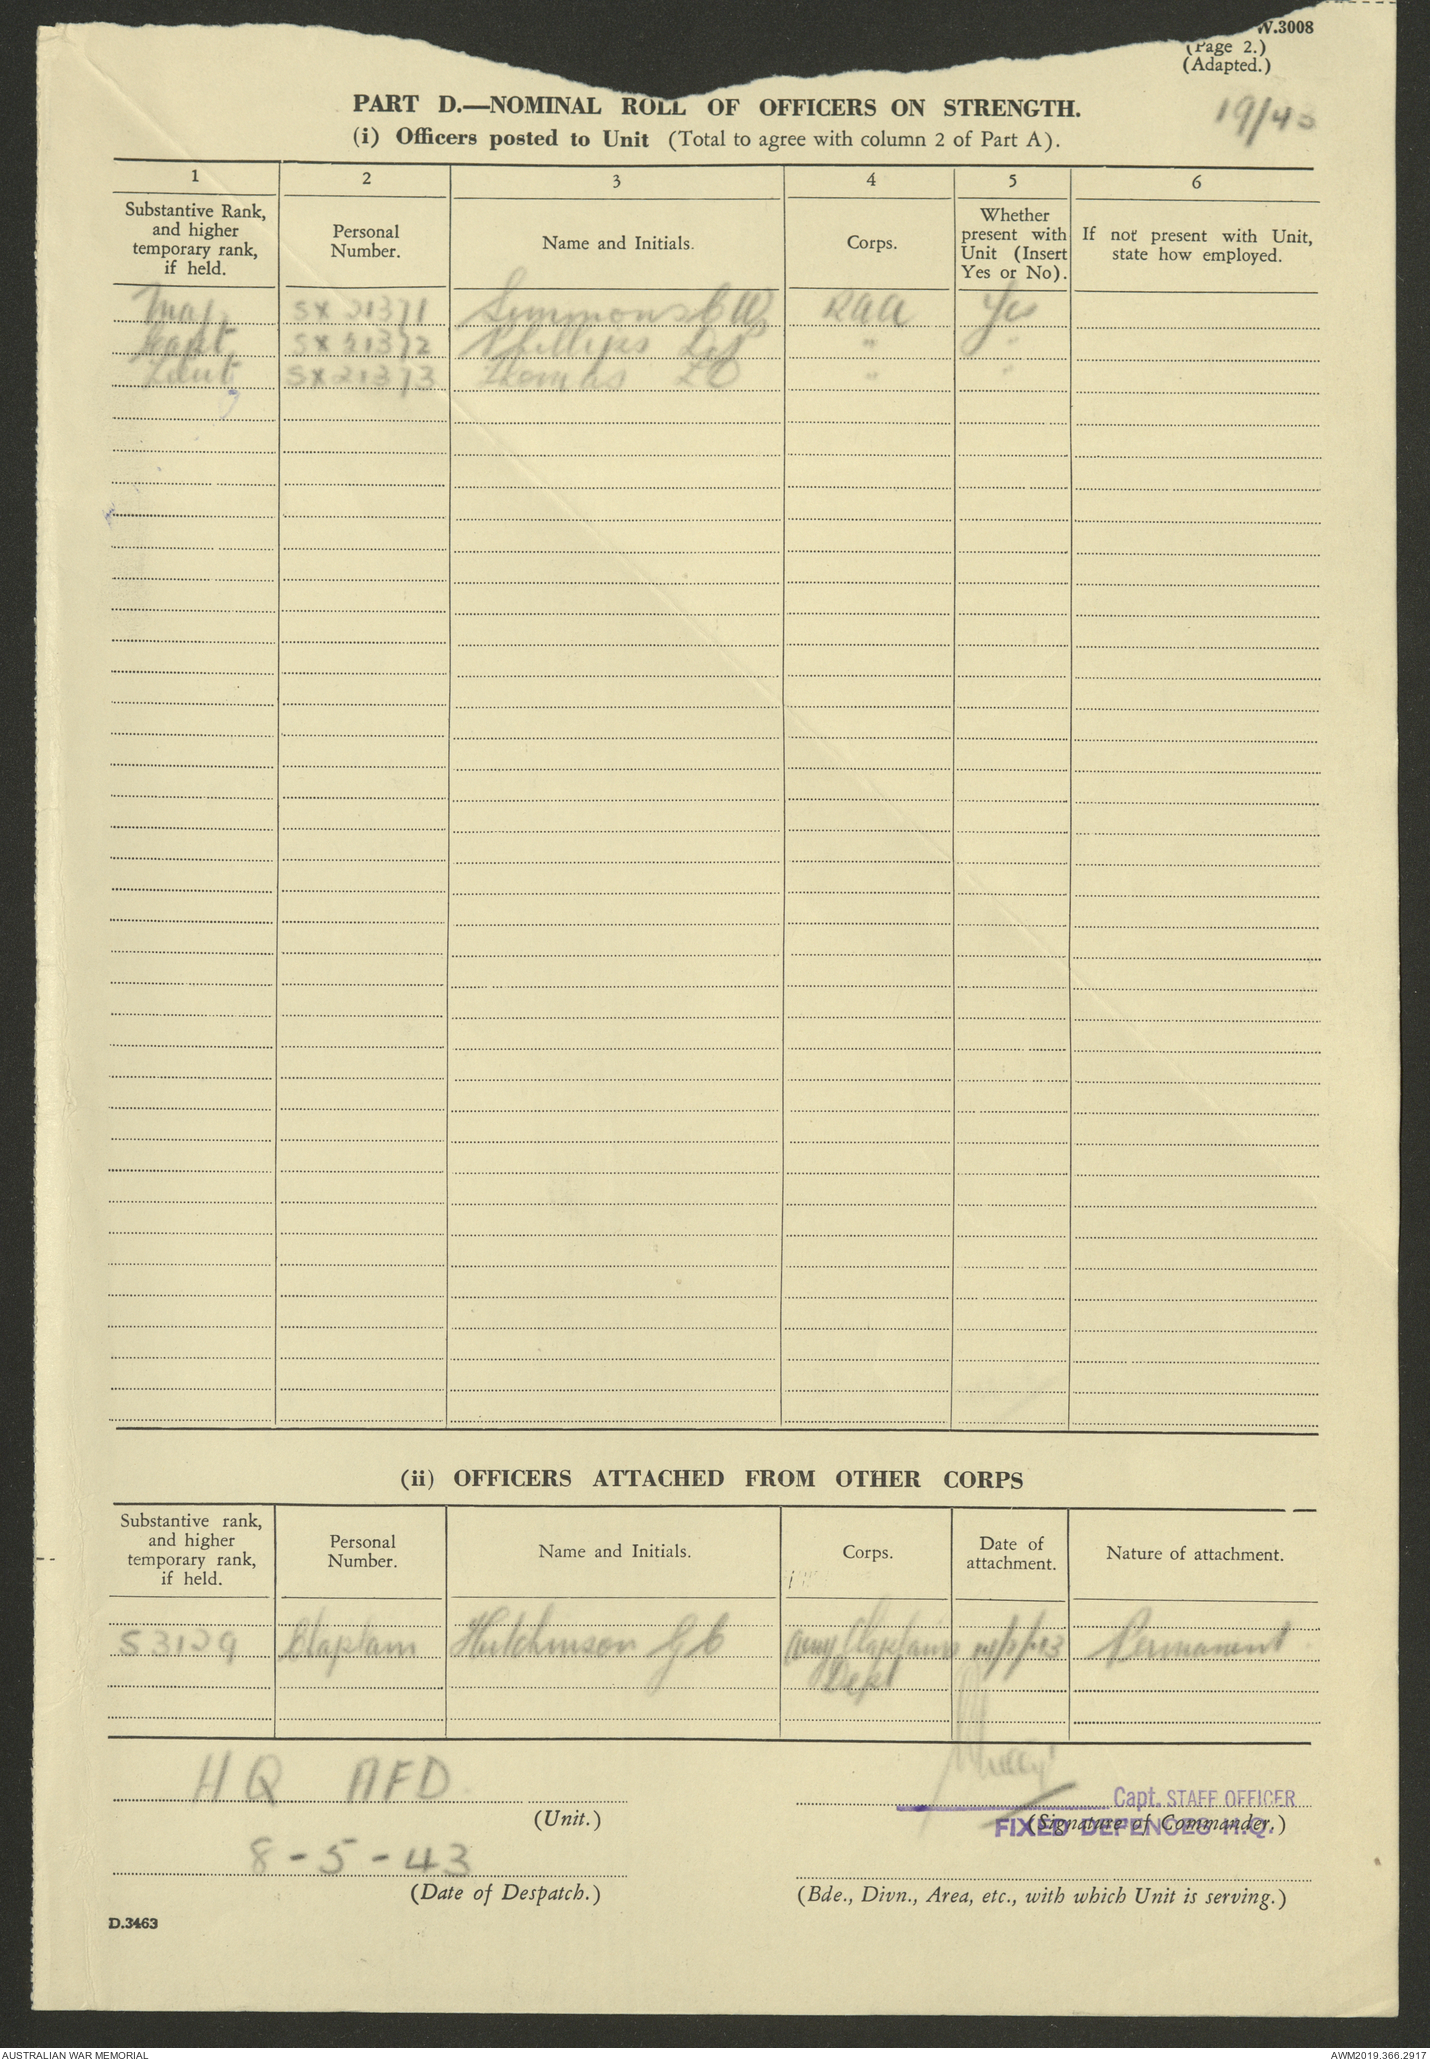 W.3008
(Page 2.)
(Adapted.)
19/43
PART D.—NOMINAL ROLL OF OFFICERS ON STRENGTH.
(i) Officers posted to Unit (Total to agree with column 2 of Part A).
1 2 3 4 5 6
Substantive Rank, and higher temporary rank, if held. Personal Number. Name and Initials. Corps. Whether present with Unit (Insert Yes or No). If not present with Unit, state how employed.
Maj. SX 21371 Simmons C W RAA Yes
Capt SX 21372 Phillips " "
Lieut SX 21373 Thomas " "
(ii) OFFICERS ATTACHED FROM OTHER CORPS
Substantive rank, and higher temporary rank, if held. Personal Number. Name and Initials. Corps. Date of attachment. Nature of attachment.
S3129 Chaplain Hutchinson G C Army Chaplains Permanent
Dept
HQ AFD
(Unit.)
Capt. STAFF OFFICER
(Signature of Commander.)
FIXED DEFENCES H.Q.
8-5-43
(Date of Despatch.)
(Bde., Divn., Area, etc., with which Unit is serving.)
D.3463
AUSTRALIAN WAR MEMORIAL
AWM2019.366.2917